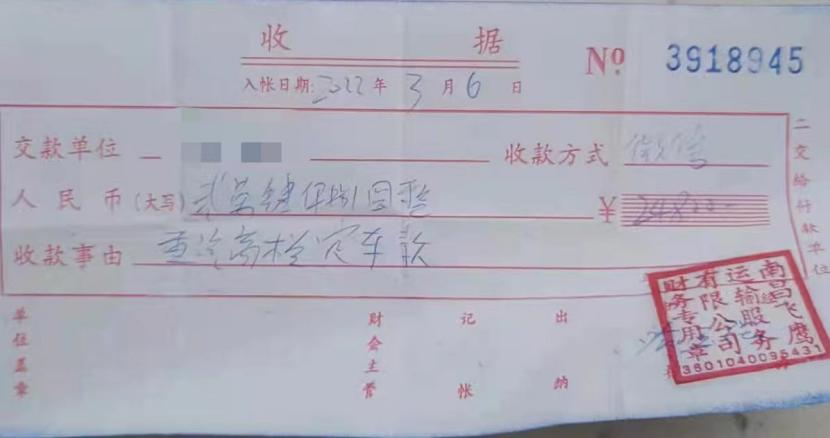 收 据
№ 3918945
入帐日期:2022年3月6日
交款单位 收款方式 微信
人民币(大写) 贰万肆仟捌佰圆整 ¥ 24800-
收款事由 重汽高栏定车款
二交给付款单位
单位盖章 财会主管 记帐 出纳
南昌飞鹰
运输服务
有限公司
财务专用章
3601040095431